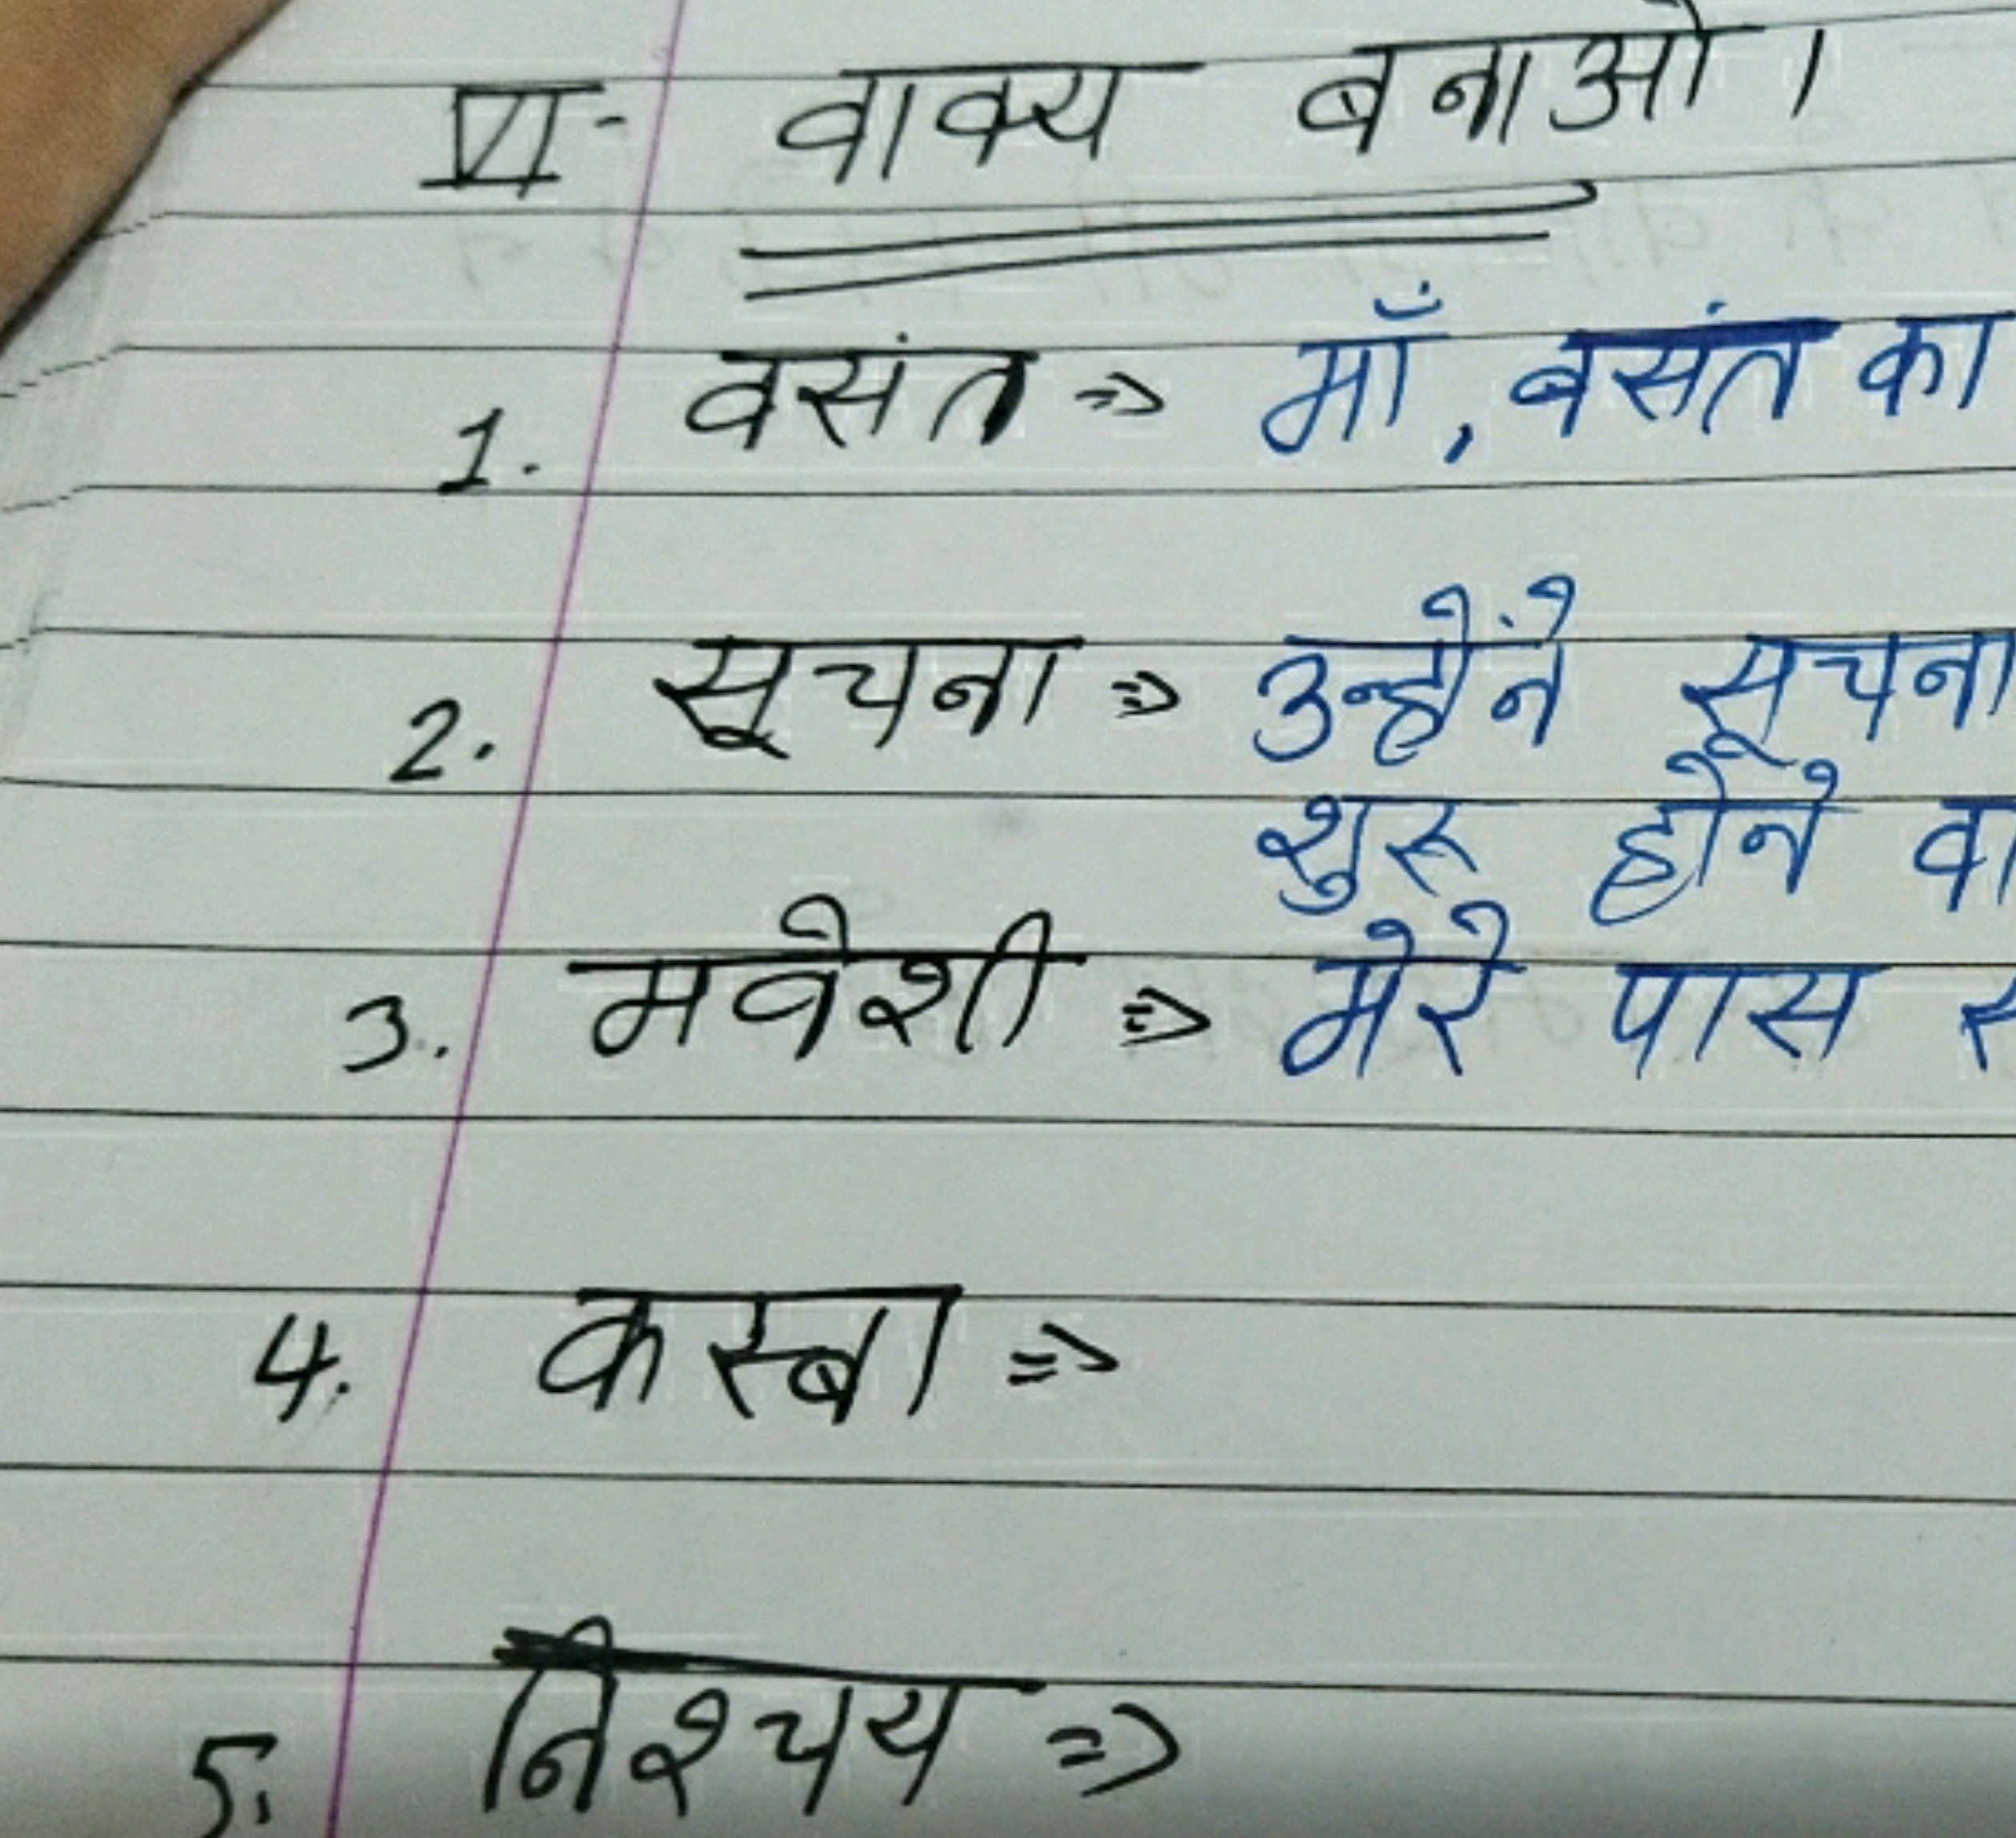 VI- वाक्य बनाओ ।
1. वसंत => माँ, बसंत का
2. सूचना => उन्होंने सूचना
शुरू होने वा
3. मवेशी => मेरे पास
4. कस्बा =>
5. निश्चय =>